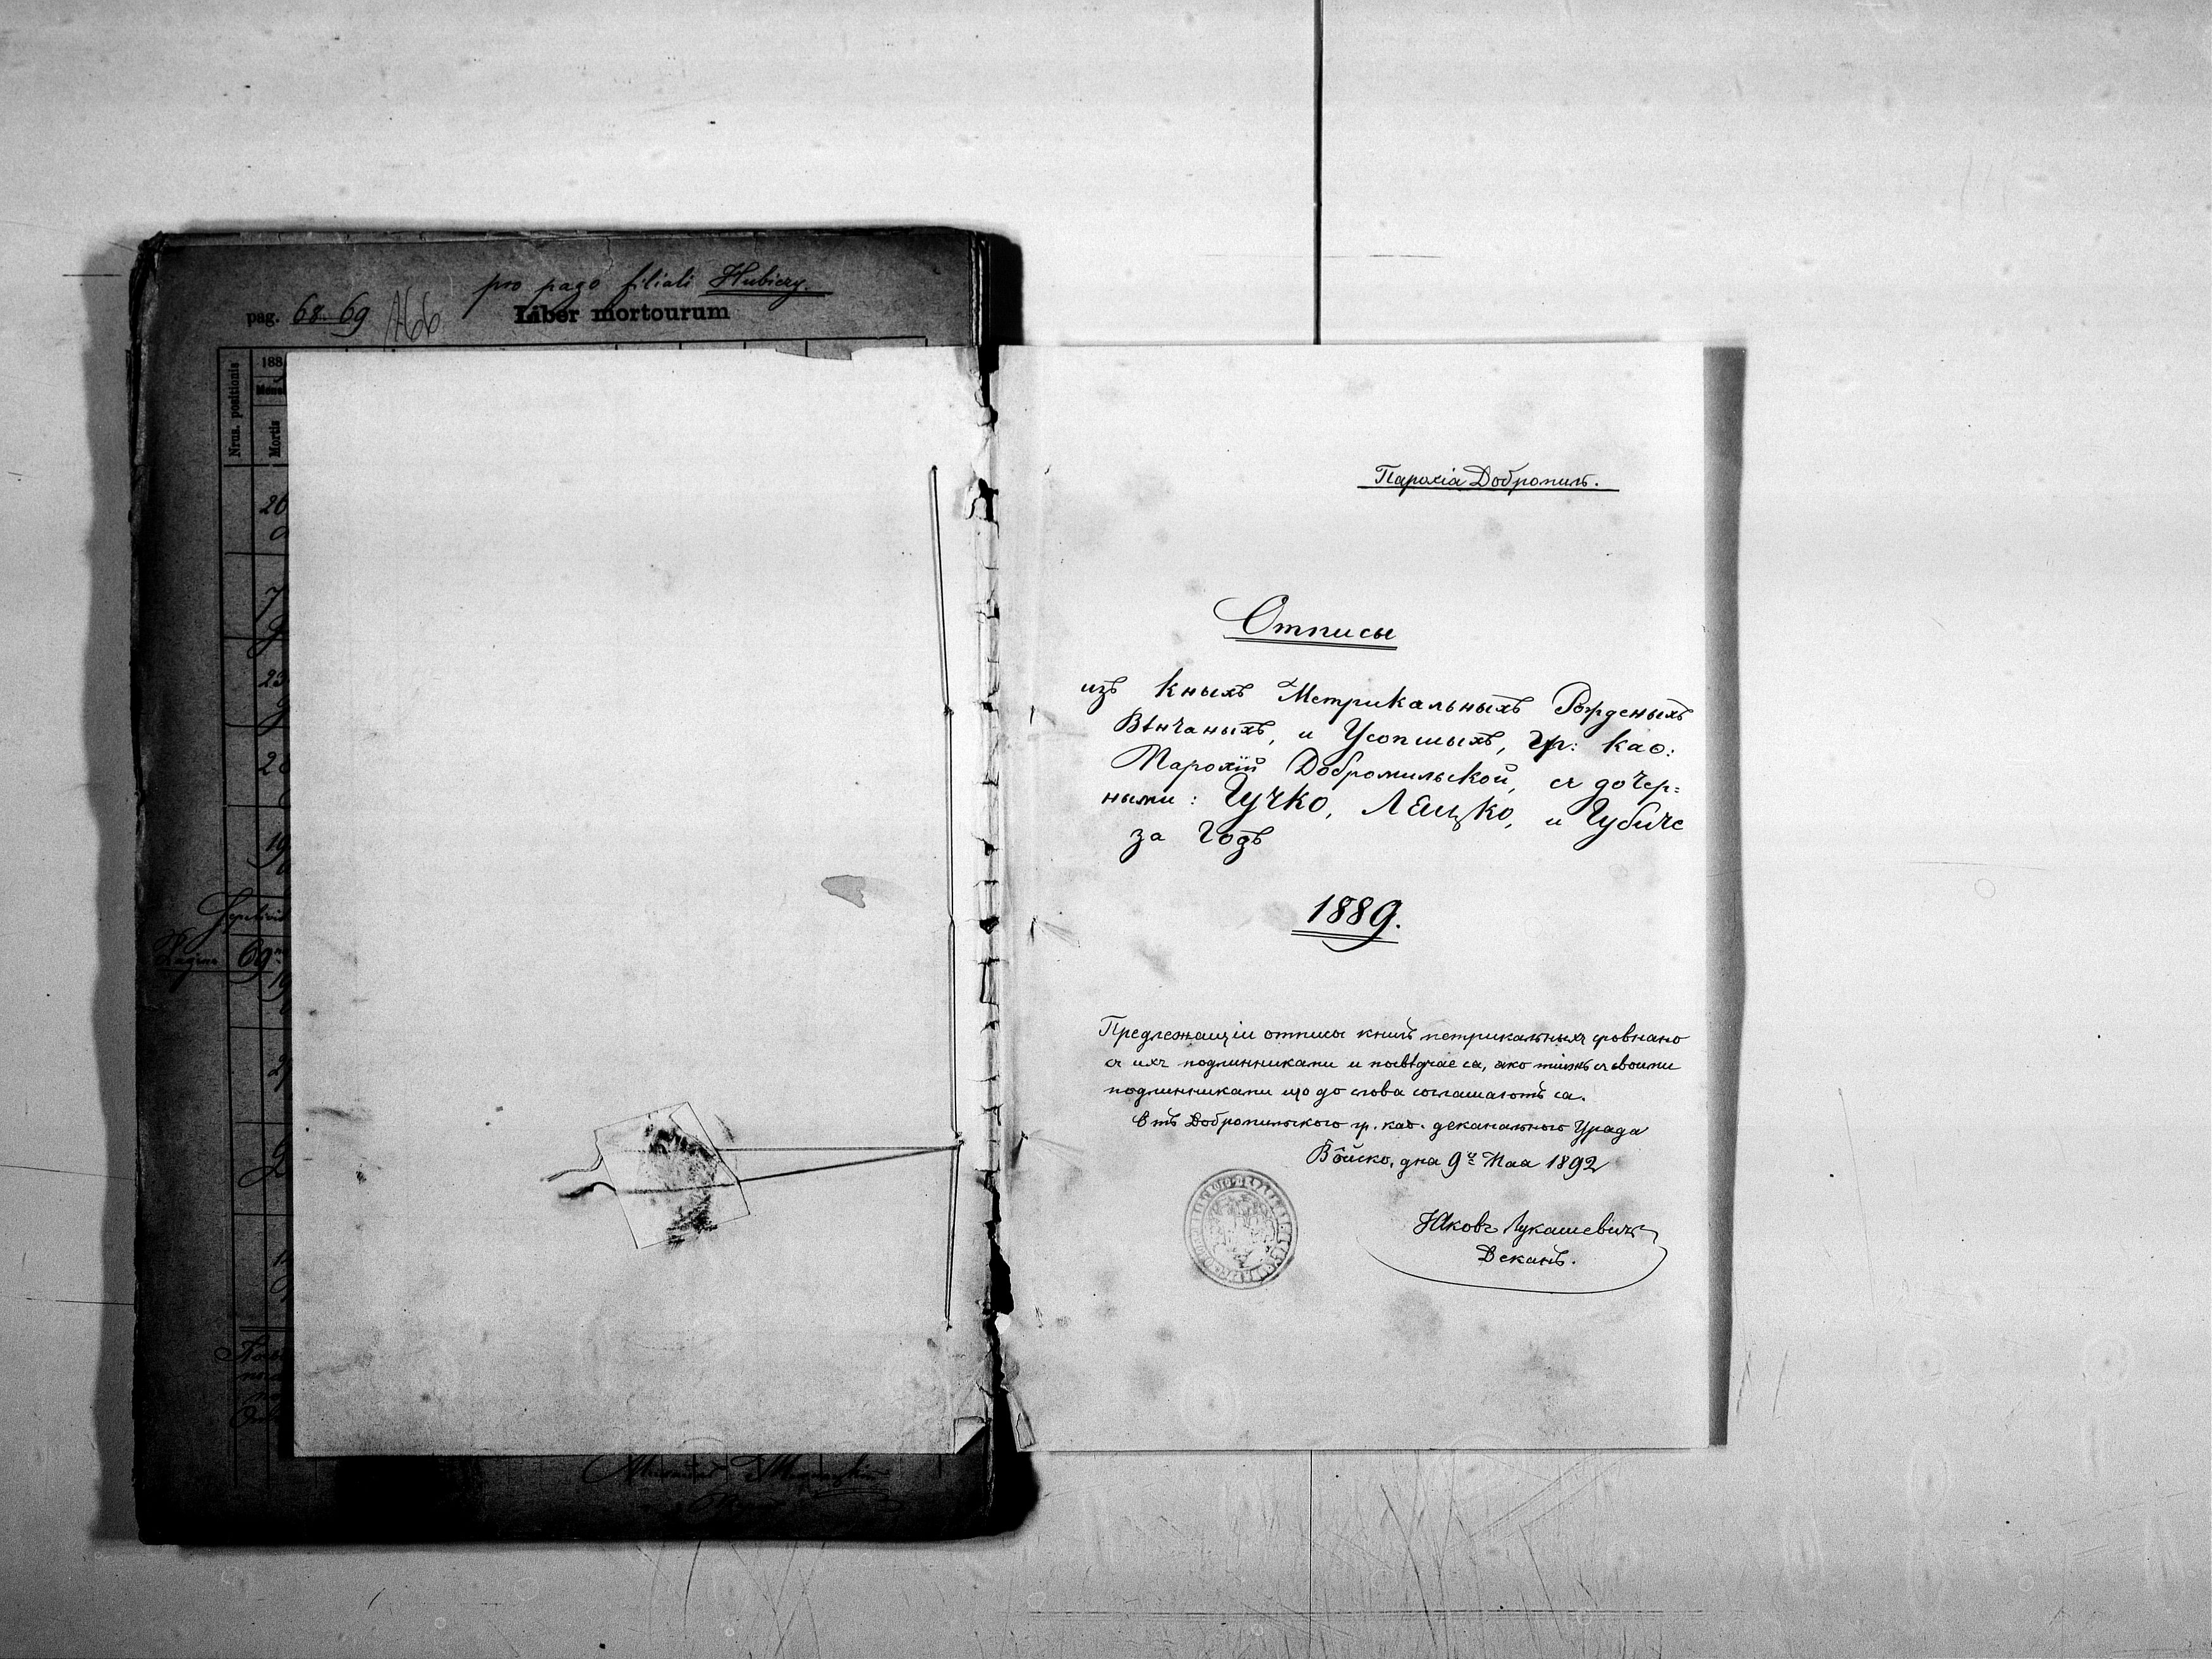 pro pago filiali Hubiczy.
pag. 68. 69 166
Liber mortourum
Nrus. positionis
188
Mens
Mortis
20
7
23
19
Pagina 69
Парохіа Добромиль.
Отписы
изъ кныхъ Метрикальныхъ Рожденыхъ
Вѣнчаныхъ, и Усопшыхъ, гр: каѳ:
Парохіи Добромильской, съ дочер=
ными: Гучко, Ляцко, и Губиче
за годъ
1889.
Предлежащіи отписы книгъ метрикальныхъ зровнано
съ ихъ подлинниками и посвѣдчае ся, яко тіижъ съ своими
подлинниками що до слова соглашаютъ ся.
Отъ Добромильского гр. каѳ. деканального Уряда
Войско, дня 9 Мая 1892
Іаковъ Лукашевичъ
Деканъ.